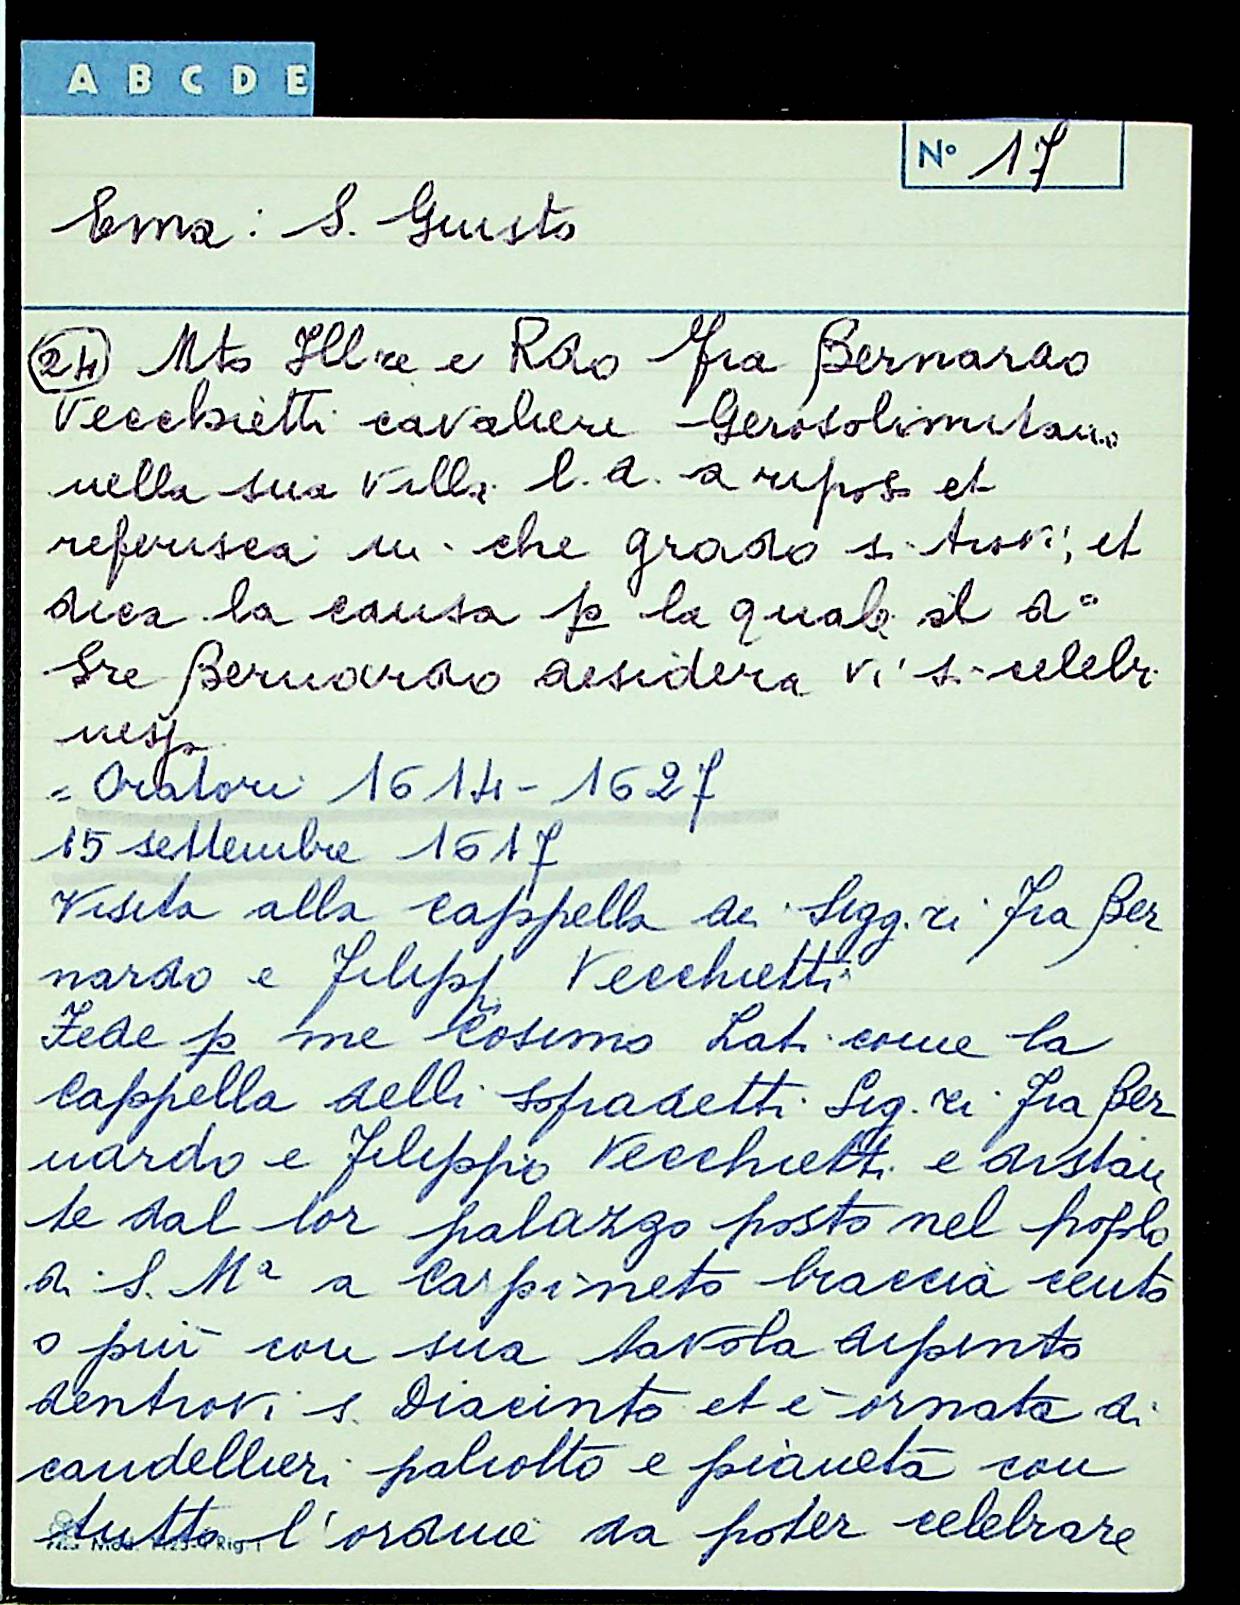 A B C D E
N° 17
Ema: S. Giusto
24 Mto Ill re e Rdo Fra Bernardo
Vecchietti cavaliere Gerosolimitano
nella sua villa l.d. a riposo et
referisca in che grado si trovi, et
dica la causa p la quale il d°
Sre Bernardo desidera vi si celebri
messa
= Oratori 1614-1627
15 settembre 1617
Visita alla cappella dei Sigg.ri Fra Ber
nardo e Filippo Vecchietti
Fede p me Cosimo Lati come la
Cappella delli sopradetti Sig.ri Fra Ber
nardo e Filippo Vecchietti e distan
te dal lor palazzo posto nel popolo
di S. Mª a Carpineto braccia cento
o più con sua tavola dipinto
dentrovi s. Diacinto et è ornata di
candellieri paliotto e pianeta con
tutto l'ordine da poter celebrare